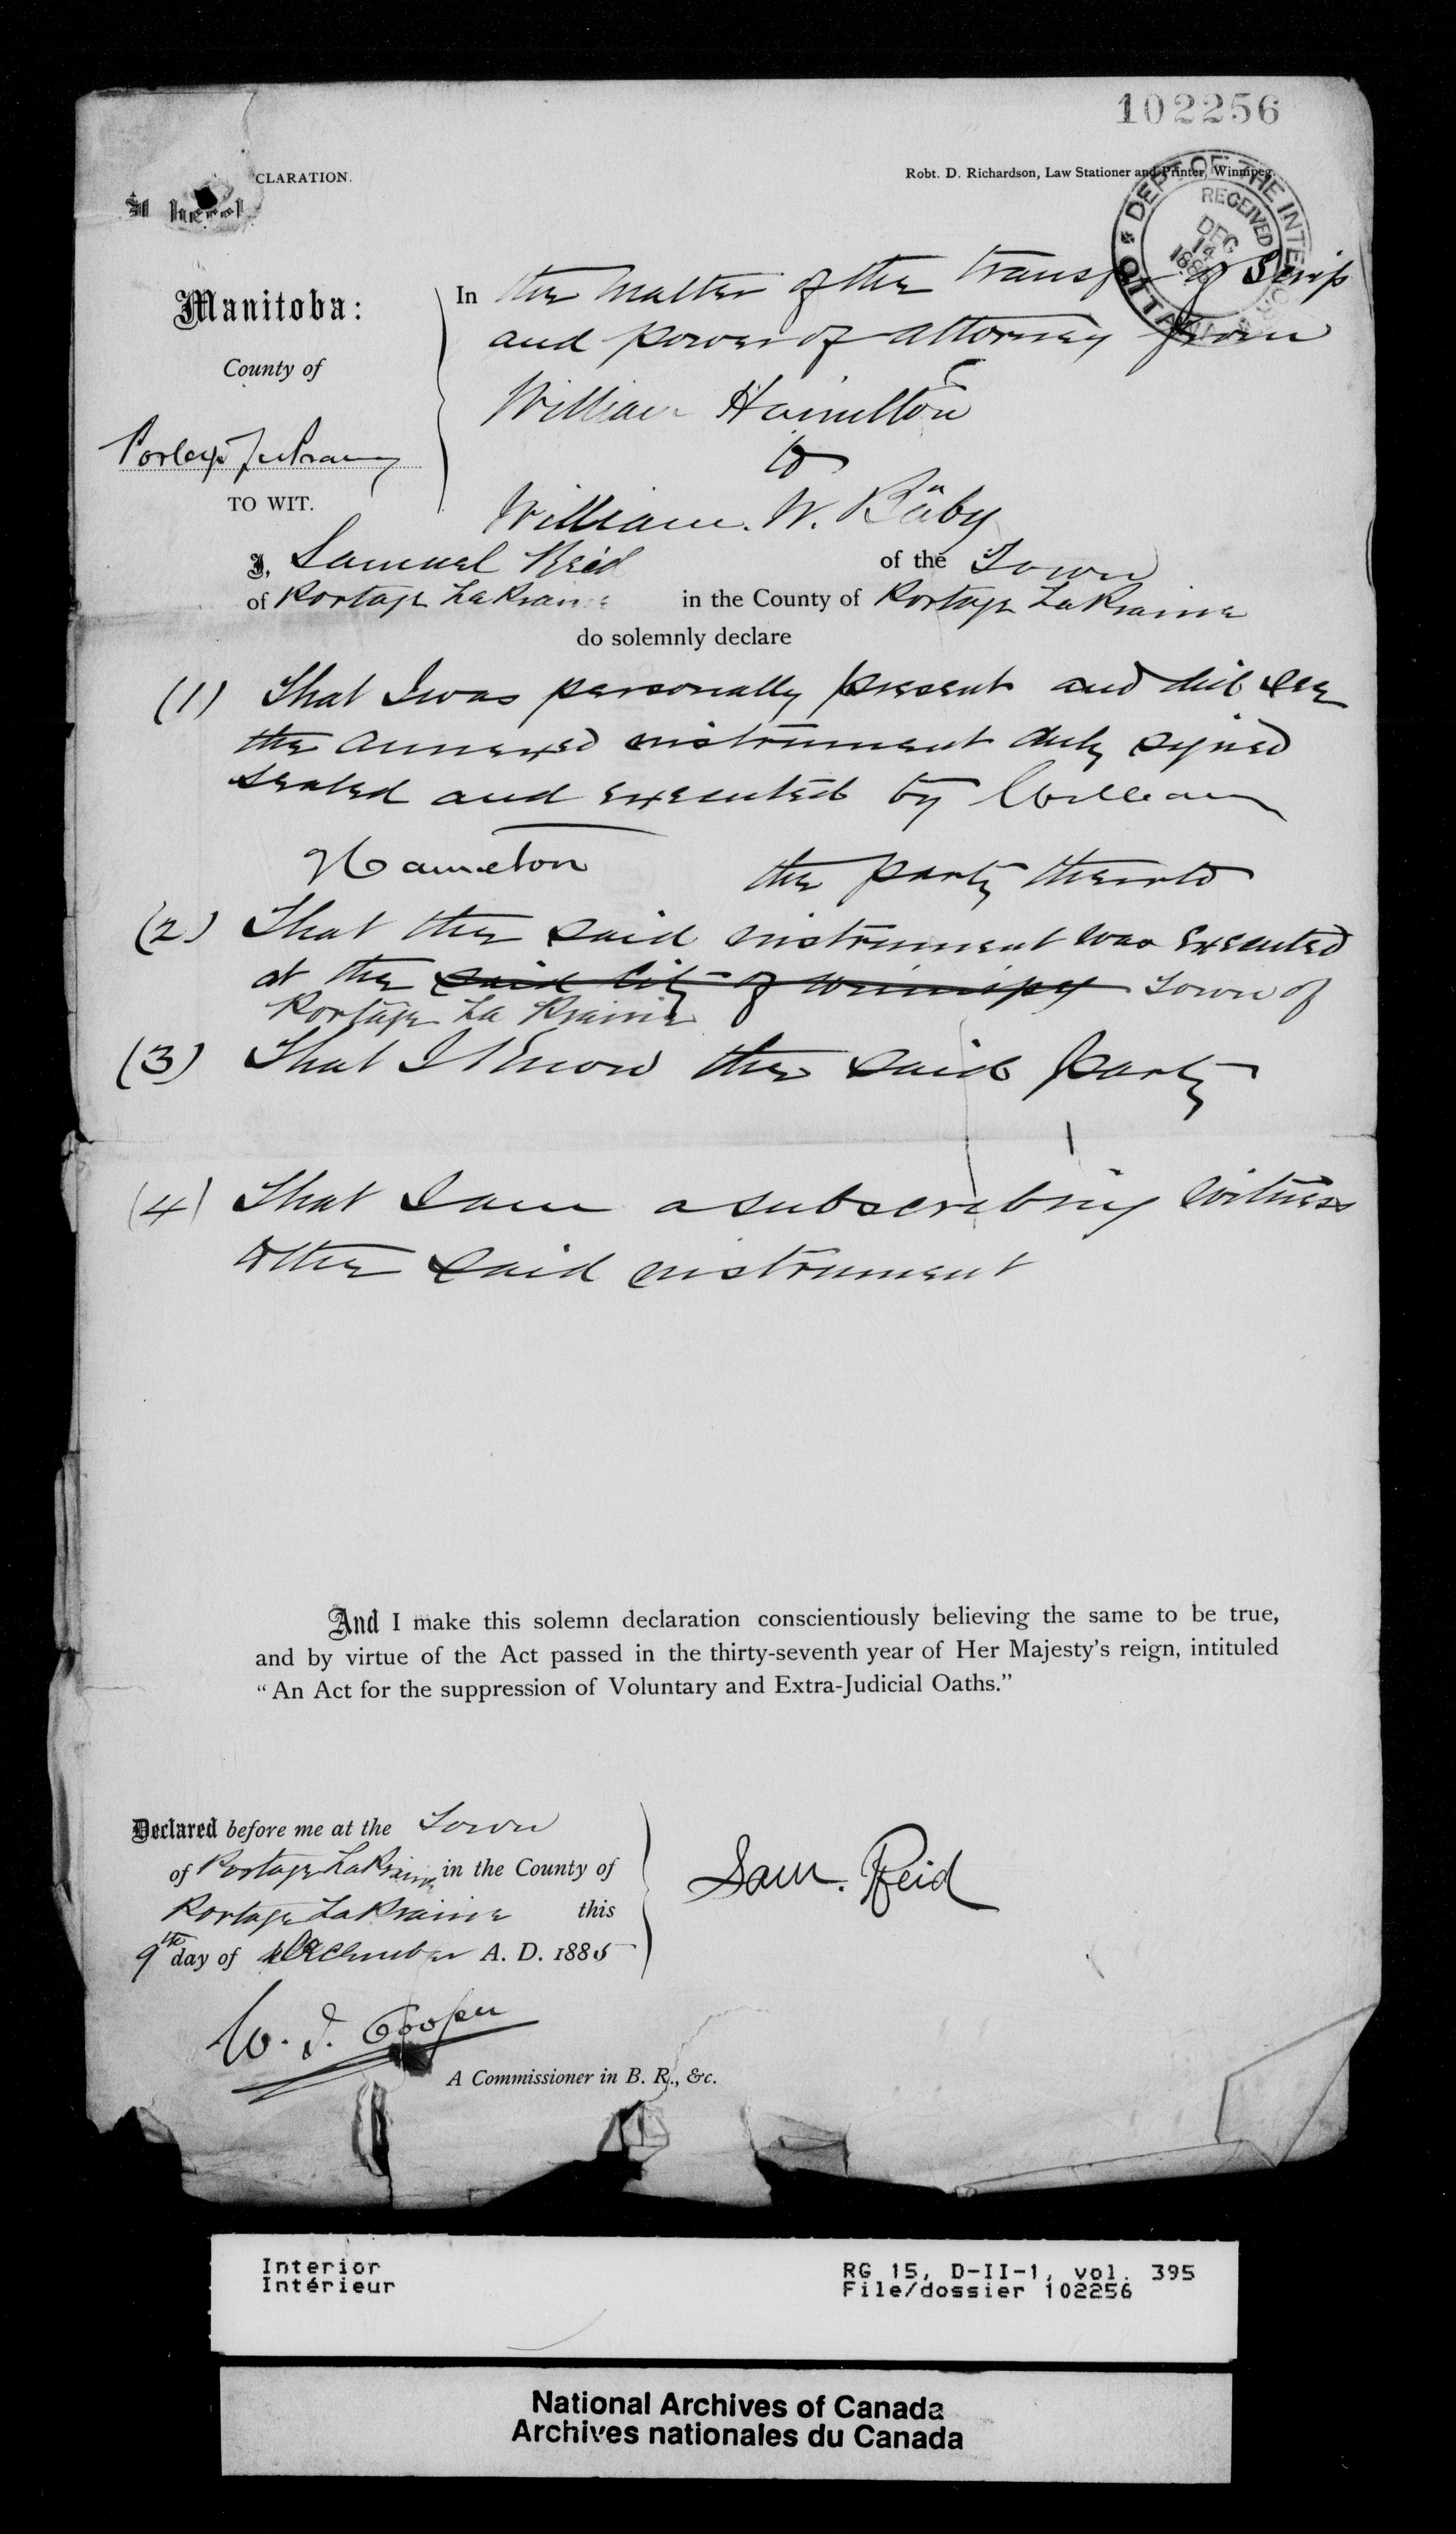 102256
CLARATION.
Robt. D. Richardson, Law Stationer and Printer, Winnipeg.
DEPT OF THE INTERIOR OTTAWA
RECEIVED
DEC
14
Manitoba:
County of
Portage La Prairie
TO WIT.
In the matter of the transfer of Scrip
and power of attorney from
William Hamilton
to
William. W. Baby
I, Samuel Reid of the Town
of Portage La Prairie in the County of Portage La Prairie
do solemnly declare
(1) That I was personally present and did see
the annexed instrument duly signed
sealed and executed by William
Hamelton the party thereto
(2) That the said instrument was executed
at the said City of Winnipeg Town of
Portage La Prairie
(3) That I know the said party
(4) That I am a subscribing witness
to the said instrument
And I make this solemn declaration conscientiously believing the same to be true,
and by virtue of the Act passed in the thirty-seventh year of Her Majesty's reign, intituled
"An Act for the suppression of Voluntary and Extra-Judicial Oaths."
Declared before me at the Town
of Portage La Prairie in the County of
Portage La Prairie this
9th day of December A. D. 1885
Sam. Reid
W. J. Cooper
A Commissioner in B. R., &c.
Interior
Intérieur
RG 15, D-II-1, vol. 395
File/dossier 102256
National Archives of Canada
Archives nationales du Canada